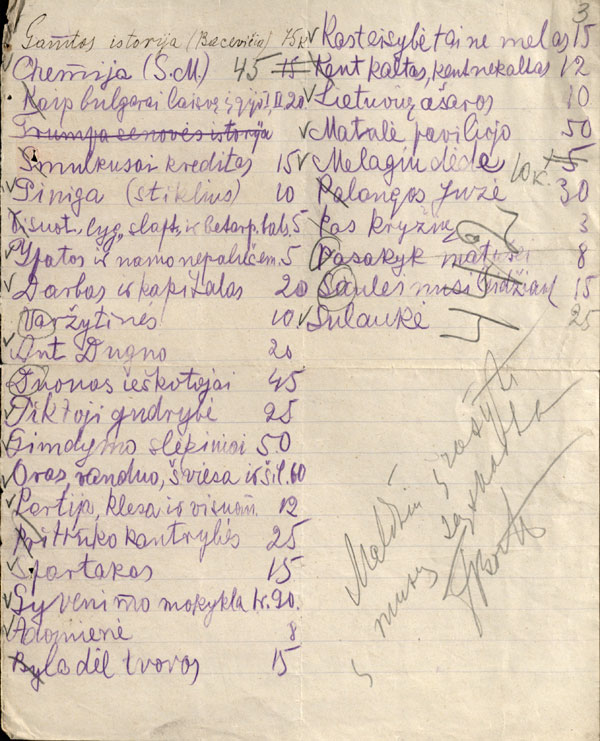 3
Gamtos istorija (Bacevičia) 75k
Chemija (S.M.) 45
Kaip bulgarai laisvę įgijo I, II 20
Trumpa senovės istorija
Smulkusai kreditas 15
Piniga (stiklius) 10
Visuot., lyg., slapt., ir betarp. bals. 5
Ypatos ir namo nepaliečiam. 5
Darbas ir kapitalas 20
Varžytinės 10
Ant Dugno 20
Duonos ieškotojai 45
Tikroji gudrybė 25
Gimdymo slėpiniai 50
Oras, vanduo, šviesa ir šil. 60
Partijo, klesa ir visuom. 12
Pritruko kantrybės 25
Spartakas 15
Gyvenimo mokykla Ir. 20.
Adomienė 8
Byla dėl tvoros 15
Kas teisybė tai ne melas 15
Kent kaltas, kent nekaltas 12
Lietuvių ašaros 10
Matulė, paviliojo 50
Melagių dėdė 10k. 15
Palangos Juzė 30
Pas kryžių 3
Pasakyk matusei 8
Saulės musi 15
Sulaukė 25
442
Meldžiu įrašyti
į musų